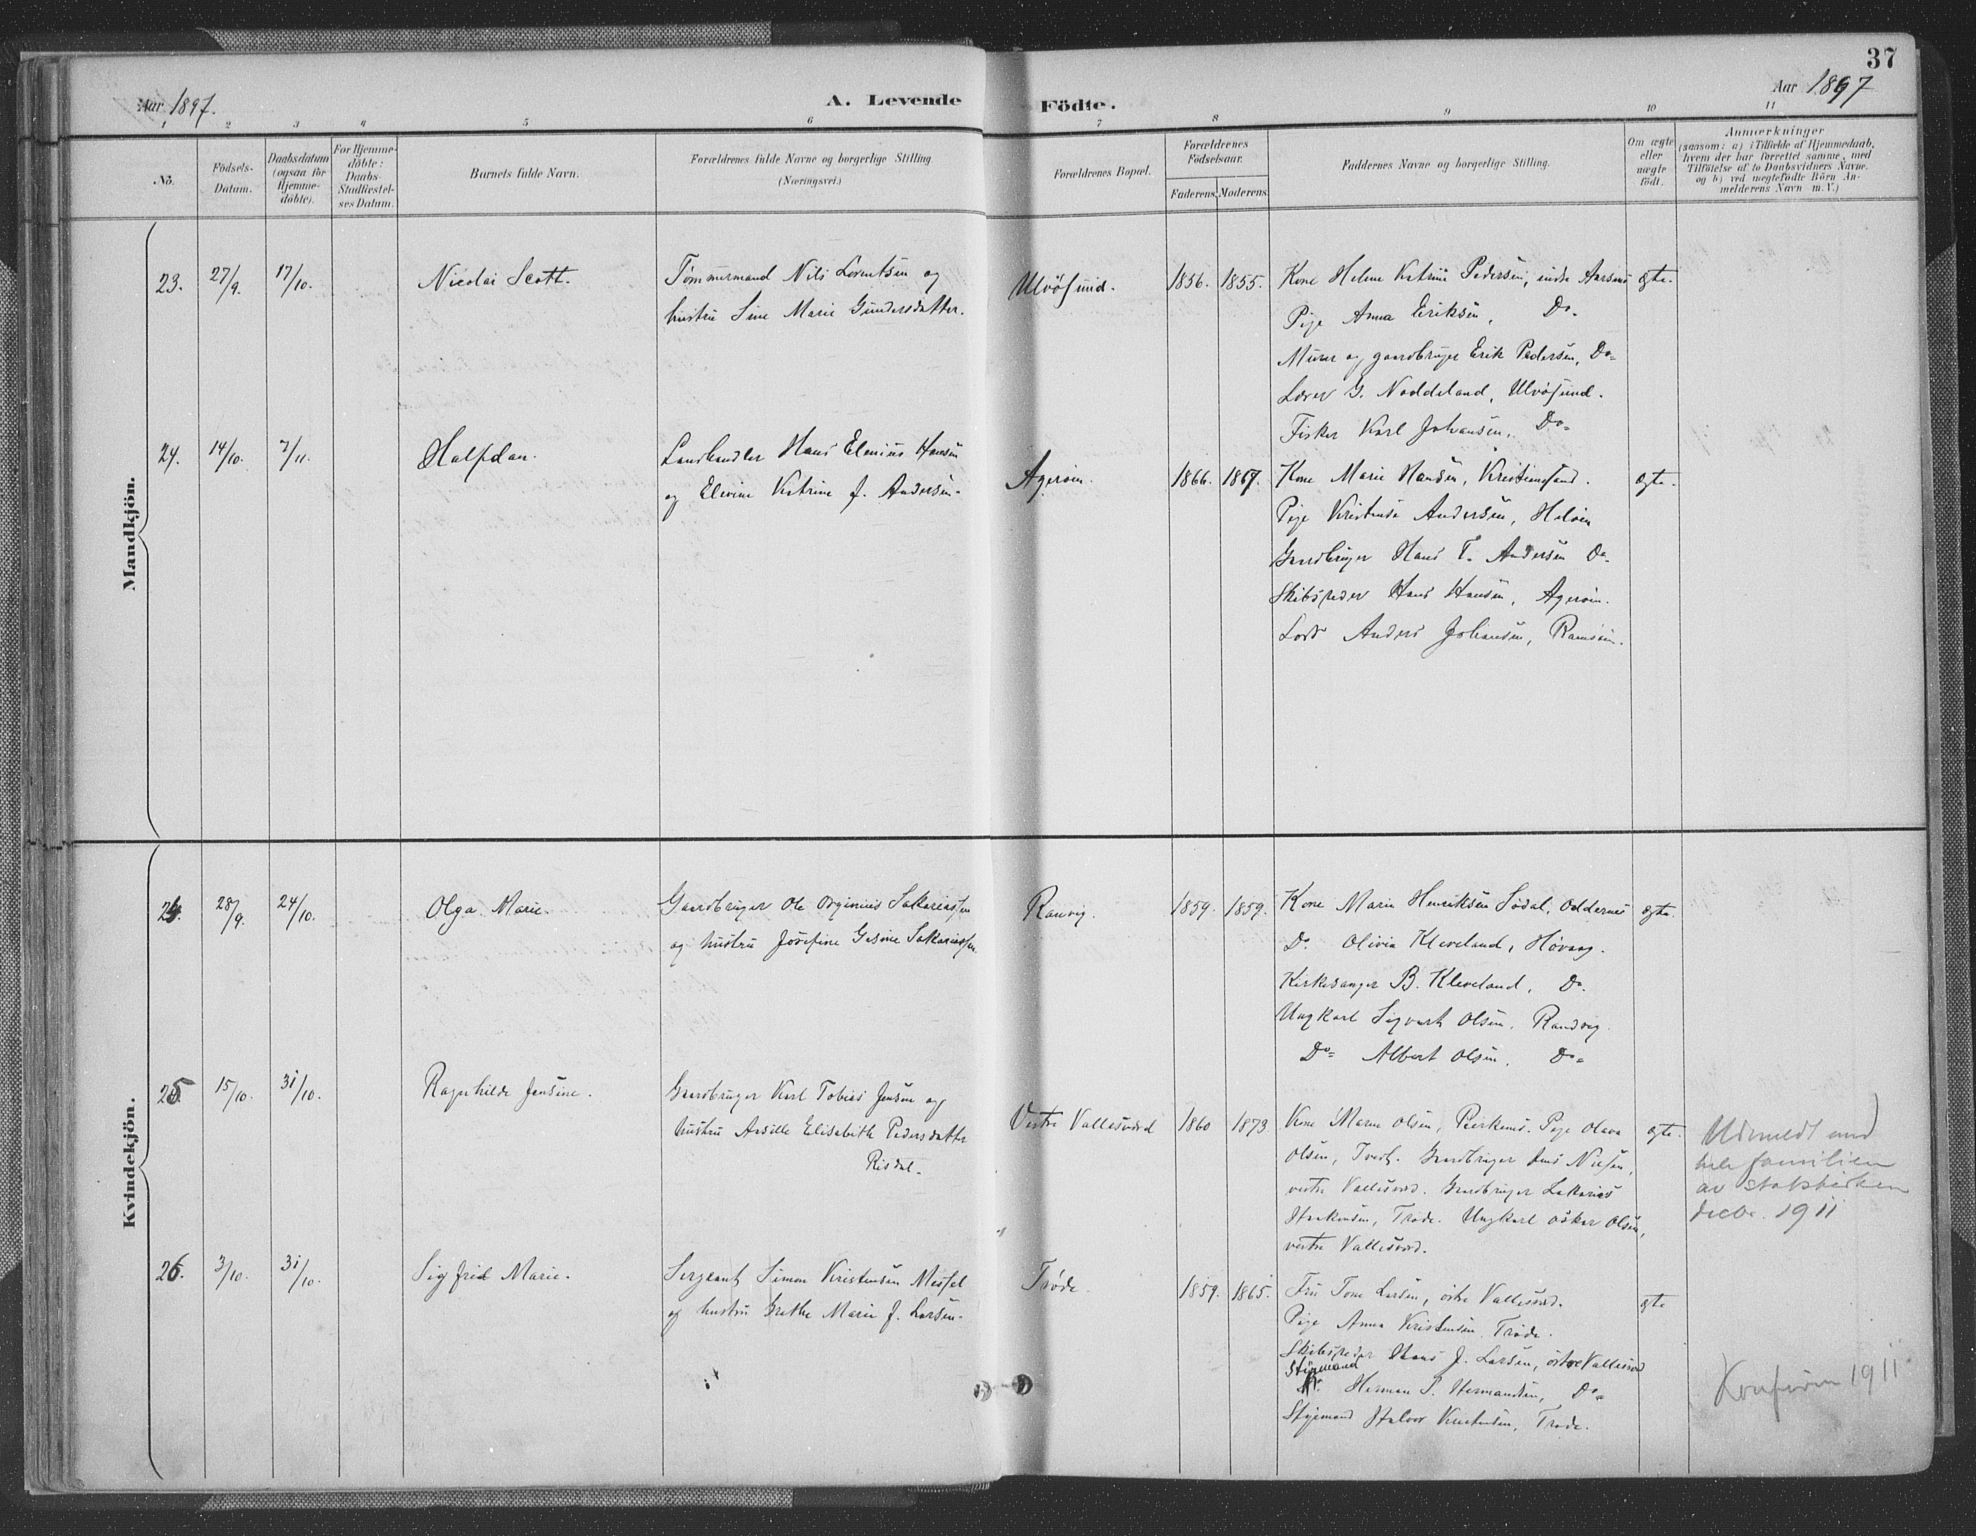 37
Aar 1897.
A. Levende Födte.
Aar 1897
1 2 3 4 5 6 7 8 9 10 11
No.
Födsels-
Datum.
Daabsdatum
(ogsaa for
Hjemme-
döbte).
For Hjemme-
döbte:
Daabs-
Stadfæstel-
ses Datum.
Barnets fulde Navn.
Forældrenes fulde Navne og borgerlige Stilling
(Næringsvei.)
Forældrenes Bopæl.
Forældrenes
Födselsaar.
Faderens. Moderens.
Faddernes Navne og borgerlige Stilling.
Om ægte
eller
uægte
födt.
Anmærkninger
(saasom: a) i Tilfælde af Hjemmedaab,
hvem der har forrettet samme, med
Tilföielse af to Daabsvidners Navne,
og b) ved uægtefödte Börn An-
melderens Navn m. V.)
Mandkjön.
23. 27/9. 17/10. Nicolai Scott.
Tömmermand Nils Lorentsen og
hustru Sine Marie Gundersdatter.
Ulvösund. 1856. 1855.
Kone Helene Katrine Pedersen, indre Aarsnes
Pige Anna Eriksen, Do.
Murer og gaardbruger Erik Pedersen, Do
Lærer G. Noddeland, Ulvösund.
Fisker Karl Johansen, Do
ægte.
24. 14/10. 7/11. Halfdan.
Landhandler Hans Elenius Hansen
og Elevine Katrine f. Andersen.
Ageröen. 1866. 1867.
Kone Marie Hansen, Kristianssand.
Pige Kristense Andersen, Helöen
Gaardbruger Hans T. Andersen Do
Skibsreder Hans Hansen, Ageröen.
Lods Anders Johansen, Ramsöen.
ægte.
Kvindekjön.
24. 28/9. 24/10. Olga Marie.
Gaardbruger Ole Orginius Sakariassen
og hustru Josefine Gesine Sakariassen
Ranvig. 1859. 1859.
Kone Marie Henriksen Sødal, Oddernes
Do Olivia Kleveland, Høvaag.
Kirkesanger B. Kleveland, Do.
Ungkarl Sigvart Olsen, Randvig.
Do Albert Olsen, Do
ægte.
25. 15/10. 31/10. Ragnhilde Jensine.
Gaardbruger Karl Tobias Jensen og
hustru Arsille Elisabeth Pedersdatter
Risdal.
Vestre Vallesværd 1860 1873
Kone Maren Olsen, Pige Olava
Olsen, Tvedt. Gaardbruger Jens Nielsen,
vestre Vallesværd. Gaardbruger Sakarias
Trøde. Ungkarl Oskar Olsen,
vestre Vallesværd.
ægte.
Udmeldt med
hele familien
av statskirken
decbr. 1911
26. 3/10. 31/10. Sigfrid Marie.
Sergeant Simon Kristensen Messel
og hustru Grethe Marie f. Larsen.
Trøde. 1859. 1865.
Fru Tone Larsen, östre Vallesværd.
Pige Anna Kristensen, Trøde.
Skibsreder Hans J. Larsen, östre Vallesværd
Styrmand
Herman P. Hermandsen, Do
Styrmand Halvor Kristensen, Trøde.
ægte
Konfirm 1911